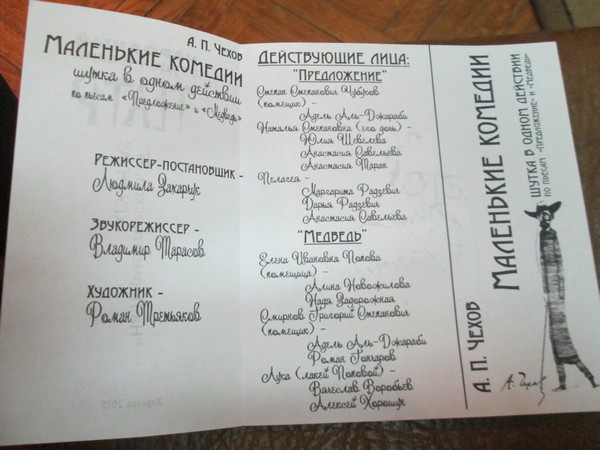 А. П. Чехов
Маленькие комедии
шутка в одном действии
по пьесам «Предложение» и «Медведь»
Режиссер-постановщик -
Людмила Закарчук
Звукорежиссер -
Владимир Тарасов
Художник -
Роман Третьяков
Действующие лица:
"Предложение"
Степан Степанович Чубуков
(помещик) -
Адель Аль-Джараби
Наталья Степановна (его дочь) -
Юлия Шевелева
Анастасия Савельева
Анастасия Таран
Пелагея -
Маргарита Радзевич
Дарья Радзевич
Анастасия Савельева
"Медведь"
Елена Ивановна Попова
(помещица) -
Алина Новожилова
Надя Задорожная
Смирнов Григорий Степанович
(помещик) -
Адель Аль-Джараби
Роман Гончаров
Лука (лакей Поповой) -
Вячеслав Воробьев
Алексей Хорошун
А. П. Чехов
Маленькие комедии
шутка в одном действии
по пьесам «Предложение» и «Медведь»